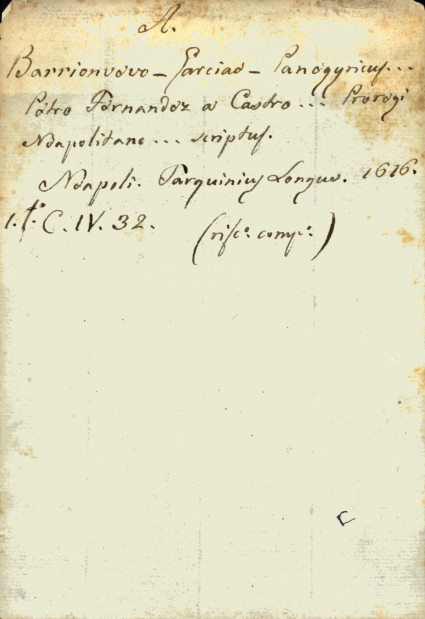 A.
Barrionuovo - Garciae - Panegyricus...
Petro Fernandez a Castro... Proregi
Neapolitano... scriptus.
Neapoli. Tarquinius Longus. 1616.
1. t. C. IV. 32. (risc.º comp.º)